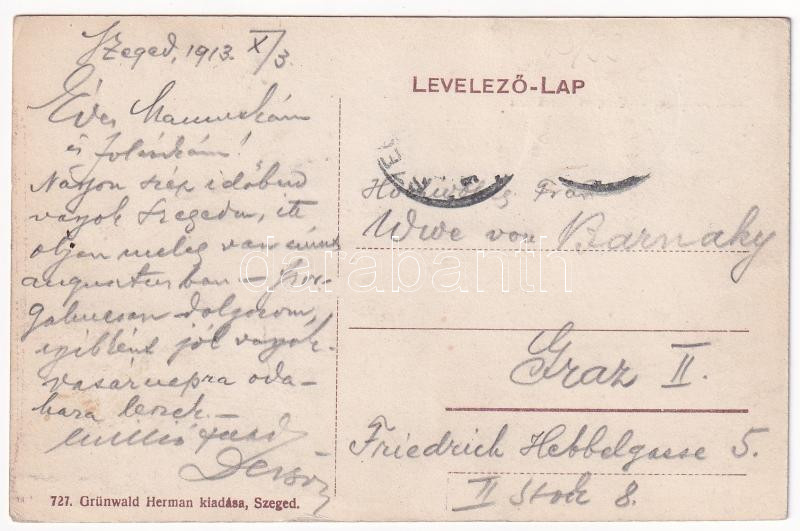 Szeged, 1913. X/3.
Édes Mamuskám
és Jolánkám!
Nagyon szép időben
vagyok Szegeden, itt
oljan meleg van mint
augusztusban –
dolgozom,
egibként jól vagyok
vasárnapra oda-
haza leszek. –
Millió
Dezső
727. Grünwald Herman kiadása, Szeged.
LEVELEZŐ-LAP
Frau
Wwe von Barnaky
Graz II.
Friedrich Hebbelgasse 5.
II Stock 8.
darabanth